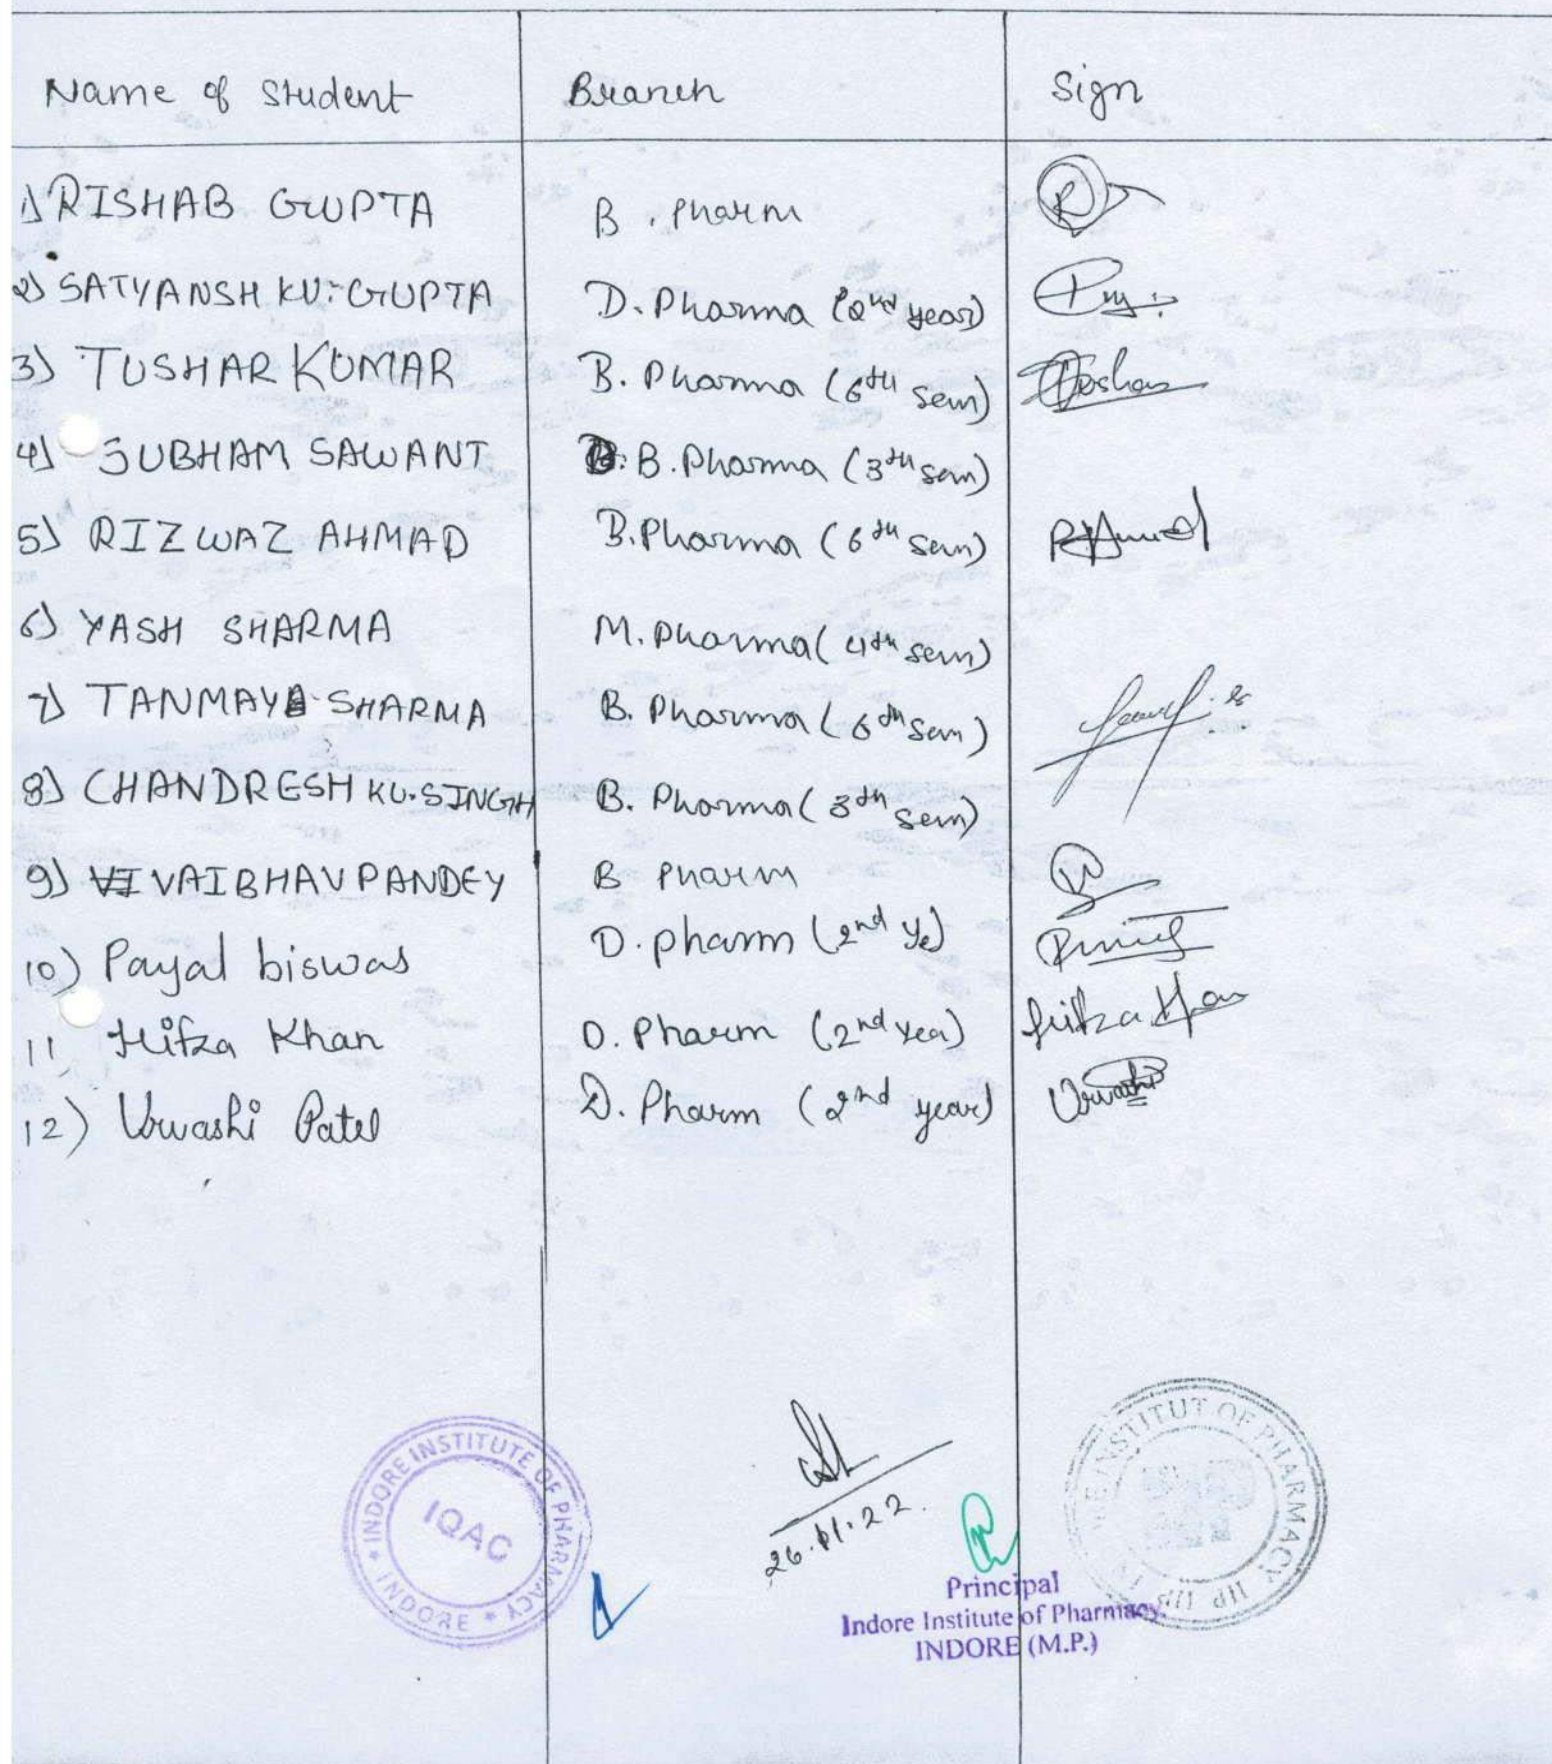 Name of Student Branch Sign
1) RISHAB GUPTA B. Pharm
2) SATYANSH KU. GUPTA D. Pharma (2nd year)
3) TUSHAR KUMAR B. Pharma (6th sem) Tushar
4) SUBHAM SAWANT B. Pharma (3th sem)
5) RIZWAZ AHMAD B. Pharma (6th sem) RAhmad
6) YASH SHARMA M. Pharma (4th sem)
7) TANMAY SHARMA B. Pharma (6th sem)
8) CHANDRESH KU. SINGH B. Pharma (3th sem)
9) VAIBHAV PANDEY B Pharm
10) Payal biswas D. pharm (2nd ye)
11 Hifza Khan D. Pharm (2nd yea) Hifza Khan
12) Urwashi Patel D. Pharm (2nd year) Urwashi
INDORE INSTITUTE OF PHARMACY * INDORE *
IQAC
26.11.22.
INSTITUT OF PHARMACY IIP
Principal
Indore Institute of Pharmacy
INDORE (M.P.)